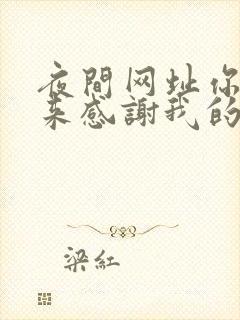 夜間网址你
来感謝我的
梁紅